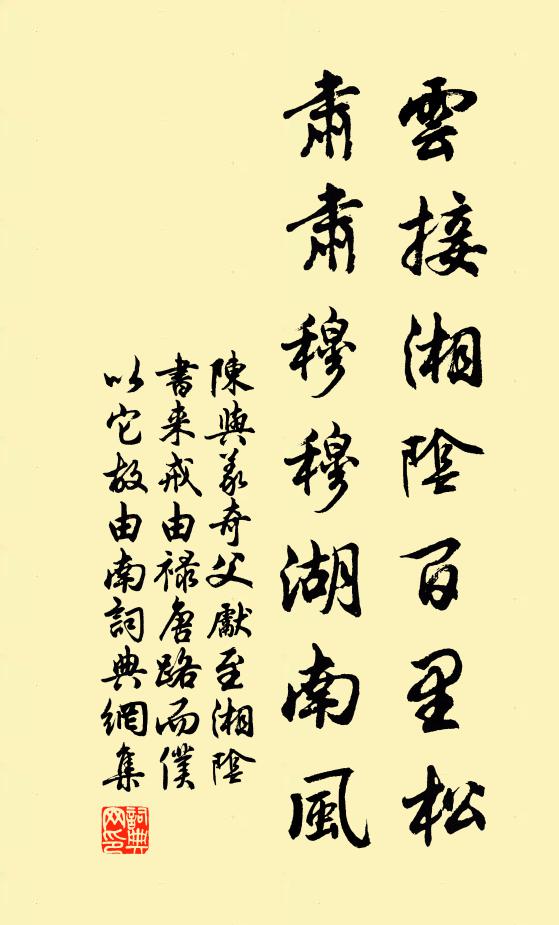 雲接湘陰百里松
肅肅穆穆湖南風
陳與義奇父獻至湘陰
書来戒由祿唐路而僕
以它故由南詞典網集
詞典
网印